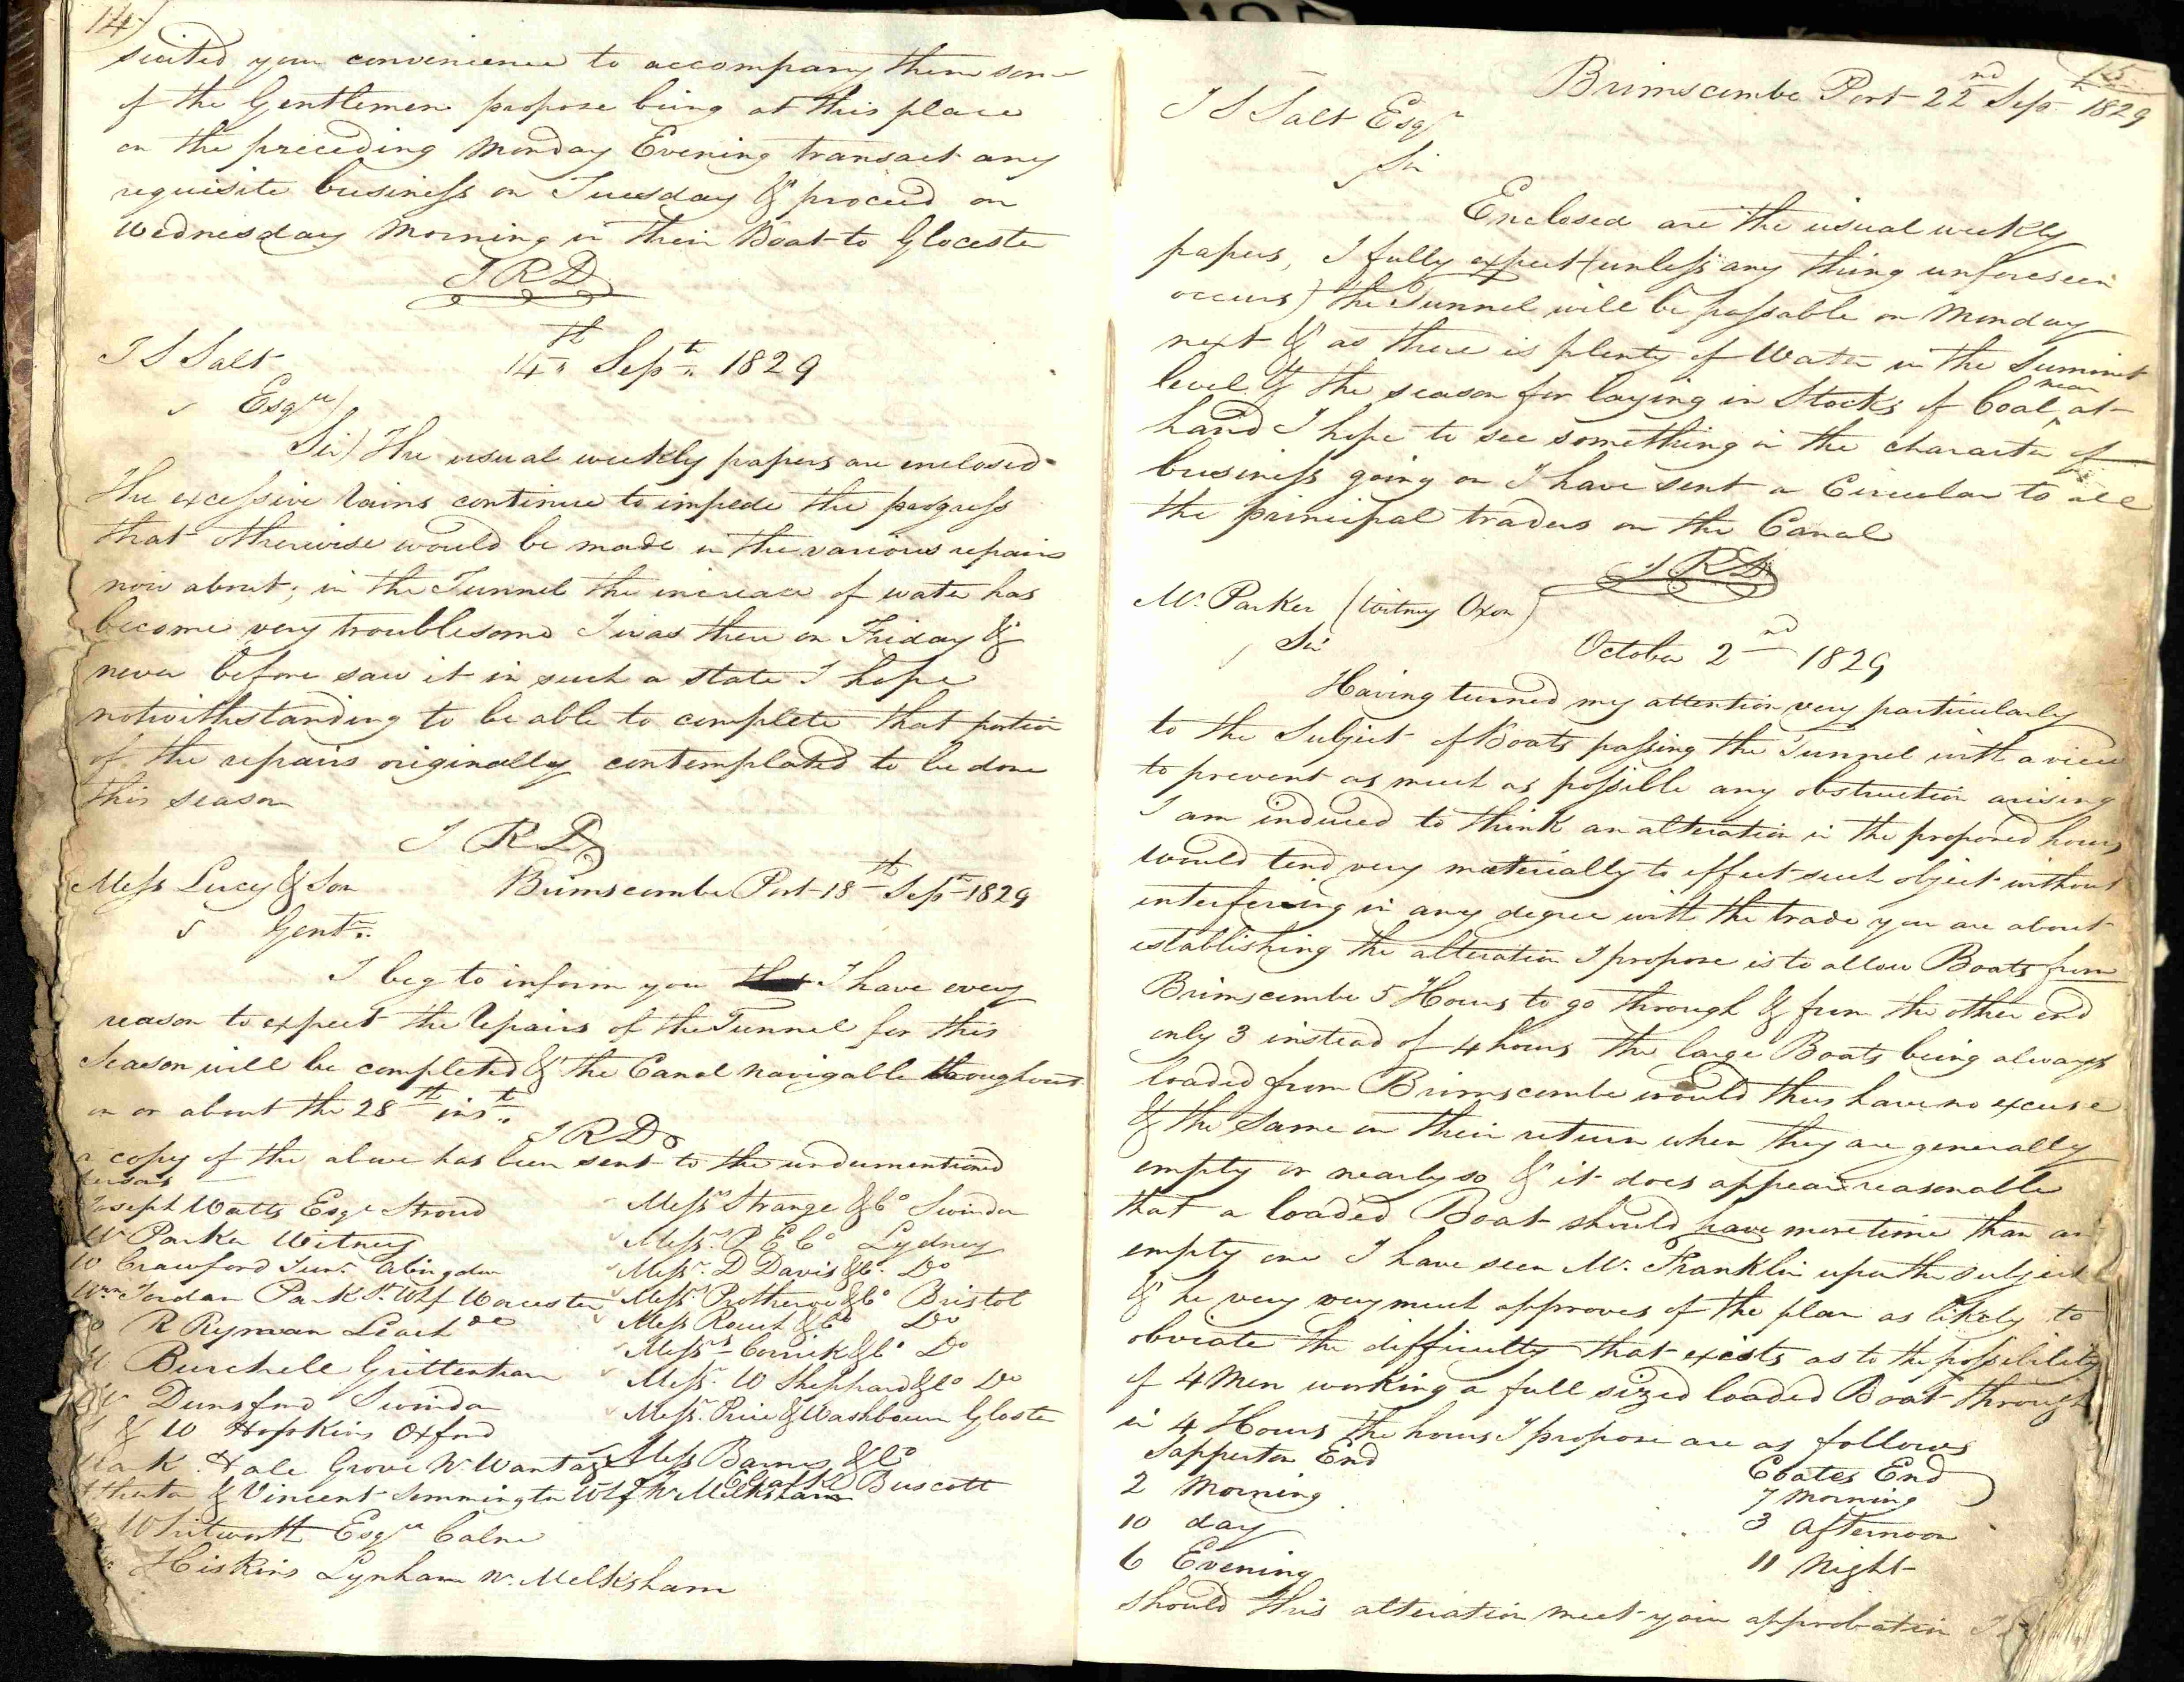 14)
suited your convenience to accompany them some
of the Gentlemen propose being at this place
on the preceding Monday Evening transact any
requisite business on Tuesday & proceed on
Wednesday Morning in their Boat to Glocester
J R D
J S Salt 14th Sept 1829
Esqre)
Sir) The usual weekly papers are enclosed
The excessive rains continue to impede the progress
that otherwise would be made in the various repairs
now about; in the Tunnel the increase of water has
become very troublesome I was there on Friday &
never before saw it in such a state I hope
notwithstanding to be able to complete that portion
of the repairs originally contemplated to be done
this season
J R D
Mess Lucy & Son Brimscombe Port 18th Sept 1829
Gentn
I beg to inform you that I have every
reason to expect the repairs of the Tunnel for this
season will be completed & the Canal navigable throughout
on or about the 28th inst
J R D
a copy of the above has been sent to the undermentioned
persons
Joseph Watts Esqr Stroud
Mr Parker Witney
W Crawford Junr Abingdon
Wm Jordan Park St Whf Worcester
R Ryman Leach
Burchell Grittenham
Dunsford Swindon
& W Hopkins Oxford
Hale Grove Nr Wantage
& Vincent Semmington Whf Nr Melksham
Whitworth Esqre Calne
Hiskins Lynham Nr Melksham
Messrs Strange & Co Swindon
Messrs P E Co Lydney
Messr D Davis & Co Do
Messrs Protheroe & Co Bristol
Mess Roach & Co Do
Messrs Cornick & Co Do
Messr W Sheppard & Co Do
Messr Price & Washbourn Gloster
Mess Barnes & Co
Buscott
15
Brimscombe Port 22nd Sept 1829
J S Salt Esqr
Sir
Enclosed are the usual weekly
papers, I fully expect (unless any thing unforeseen
occurs) the Tunnel will be passable on Monday
next & as there is plenty of Water in the Summit
level & the season for laying in Stocks of Coal near at
hand I hope to see something in the character of
business going on I have sent a Circular to all
the principal traders on the Canal
J R D
Mr. Parker (Witney Oxon)
Sir October 2nd 1829
Having turned my attention very particularly
to the Subject of Boats passing the Tunnel with a view
to prevent as much as possible any obstruction arising
I am induced to think an alteration in the proposed hours
would tend very materially to effect such object without
interfering in any degree with the trade you are about
establishing the alteration I propose is to allow Boats from
Brimscombe 5 Hours to go through & from the other end
only 3 instead of 4 hours the large Boats being always
loaded from Brimscombe would thus have no excuse
& the same on their return when they are generally
empty or nearly so & it does appear reasonable
that a loaded Boat should have more time than an
empty one I have seen Mr. Franklin upon the subject
& he very very much approves of the plan as likely to
obviate the difficulty that exists as to the possibility
of 4 Men working a full sized loaded Boat through
in 4 Hours the hours I propose are as follows
Sapperton End Coates End
2 Morning 7 Morning
10 day 3 Afternoon
6 Evening 11 Night
Should this alteration meet your approbation I